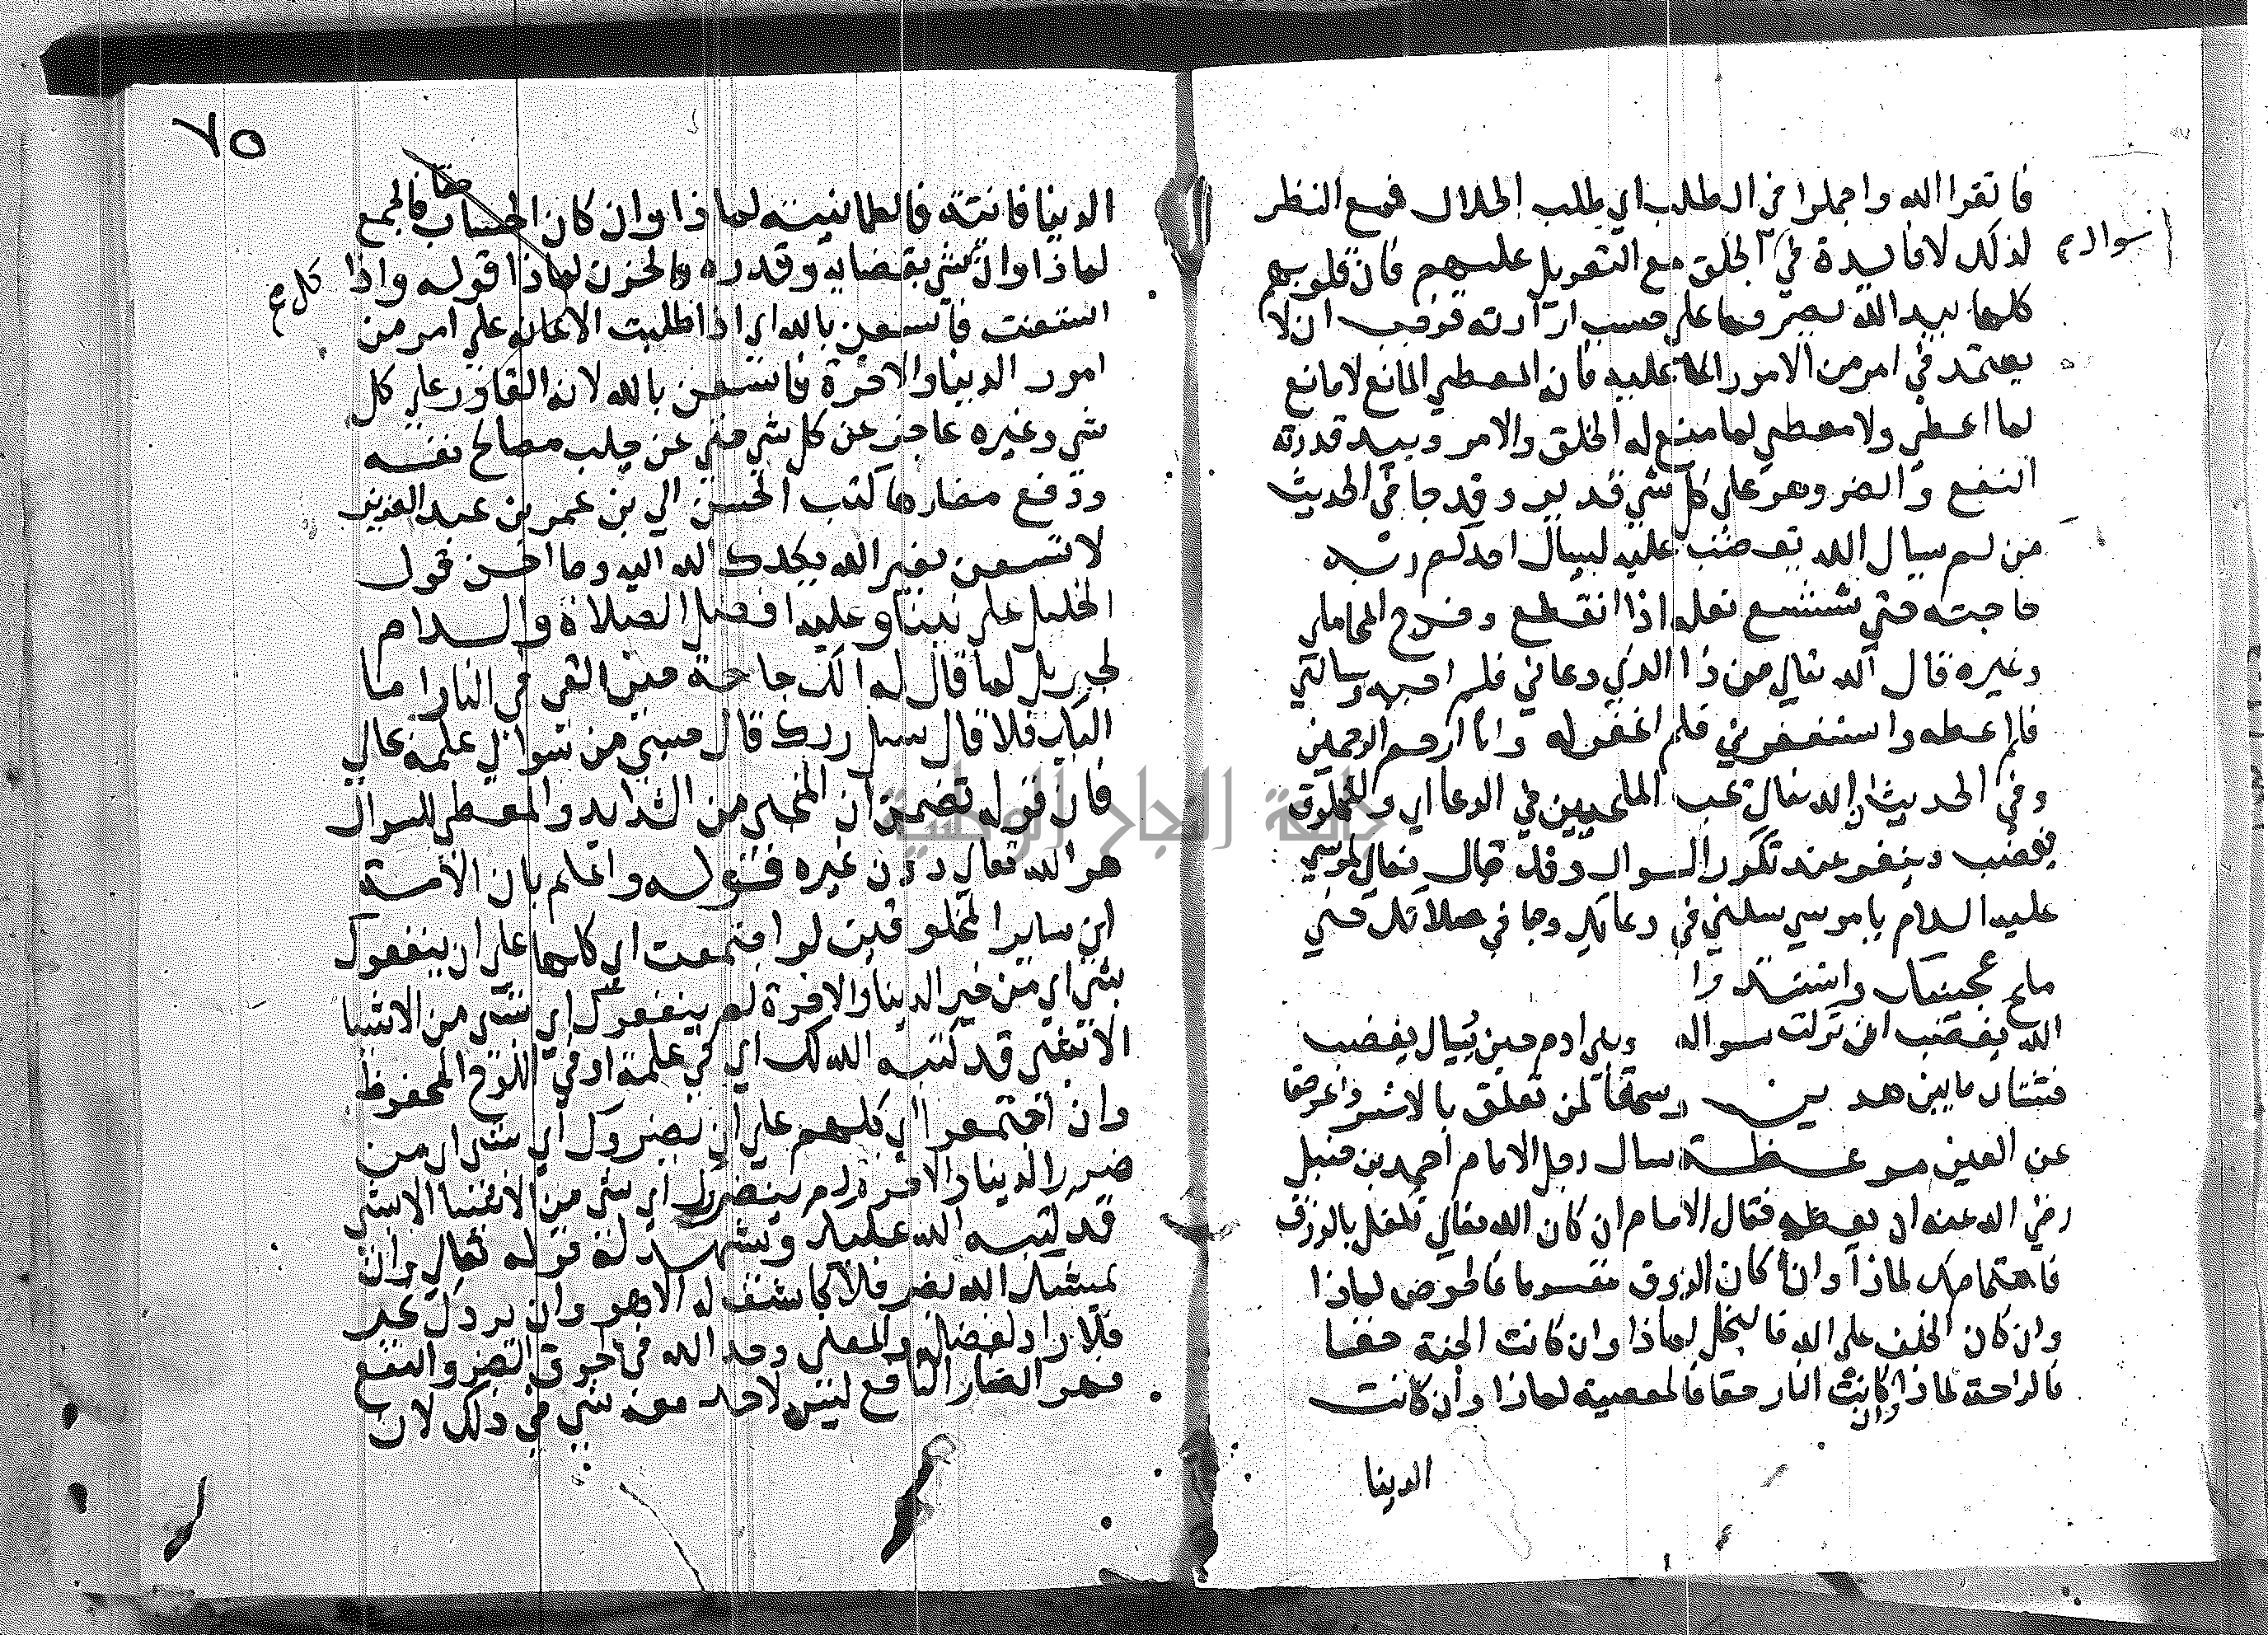 فاتقوا الله واجملوا في الطلب اي بطلب الحلال فمع النظر
لذلك لا فايدة في الخلق مع التعويل عليهم فان قلوبهم
سوال
كلها بيد الله يصرفها علي حسب ارادته فوجب ان لا
يعتمد في امر من الامور الا عليه فانه المعطي المانع لا مانع
لما اعطي ولا معطي لما منع له الخلق والامر وبيد قدرته
النفع والضر وهو علي كل شي قدير وقد جا في الحديث
من لم يسال الله يغضب عليه ليسال احدكم ربه
حاجته حتي شسع نعله اذا انقطع وخرج المحاملي
وغيره قال الله تعالي من ذا الذي دعاني فلم اجبه وسالني
فلم اعطه واستغفرني فلم اغفر له وانا ارحم الراحمين
وفي الحديث ان الله تعالي يحب الملحين في الدعا اي والمخلوق
يغضب وينفر عند تكرر السوال وقد قال تعالي لموسي
عليه السلام يا موسي سلني في دعايك وجا في صلاتك حتي
ملح عجينك وانشدوا
الله يغضب ان تركت سواله وبني ادم حين يسال يغضب
فشتان ما بين هذين وسحقا لمن تعلق بالاثر واعرض
عن العين موعظة سال رجل الامام احمد بن حنبل
رضي الله عنه ان يعظه فقال الامام ان كان الله تعالي تكفل بالرزق
فاهتمامك لماذا وان كان الرزق مقسوما فالحرص لماذا
وان كان الخلف علي الله فالبخل لماذا وان كانت الجنة حقا
فالراحة لماذا وان كانت النار حقا فالمعصية لماذا وان كانت
الدنيا
٧٥
الدنيا فانية فالطمانينة لماذا وان كان الحساب حقا فالجمع
لماذا وان كل شي بقضايه وقدره فالحزن لماذا قوله واذا
استعنت فاستعن بالله اي اذا طلبت الاعانة علي امر من
امور الدنيا والاخرة فاستعن بالله لانه القادر علي كل
شي وغيره عاجز عن كل شي حتي عن جلب مصالح نفسه
ودفع مضارها كتب الحسن الي بن عمر بن عبد العزيز
لا تستعن بغير الله يكلك الله اليه وما احسن قول
الخليل علي نبينا وعليه افضل الصلاة والسلام
لجبريل لما قال له الك حاجة حين القي في النار اما
اليك فلا قال سل ربك قال حسبي من سوالي علمه بحالي
فان قوله تضمن ان المنجي من الشدايد والمعطي للسوال
هو الله تعالي دون غيره فقوله واعلم بان الامة
اي ساير المخلوقين لو اجتمعت اي كلها علي ان ينفعوك
بشي اي من خير الدنيا والاخرة لم ينفعوك اي بشي من الاشيا
الا بشي قد كتبه الله لك اي في علمه او في اللوح المحفوظ
وان اجتمعوا اي كلهم علي ان يضروك اي بشي اي من
ضرر الدنيا والاخرة لم يضروك اي بشي من الاشيا الا بشي
قد كتبه الله عليك ويشهد له قوله تعالي وان
يمسسك الله بضر فلا كاشف له الا هو وان يردك بخير
فلا راد لفضله والمعني وحد الله في لحوق الضر والنفع
فهو الضار النافع ليس لاحد معه شي في ذلك لان